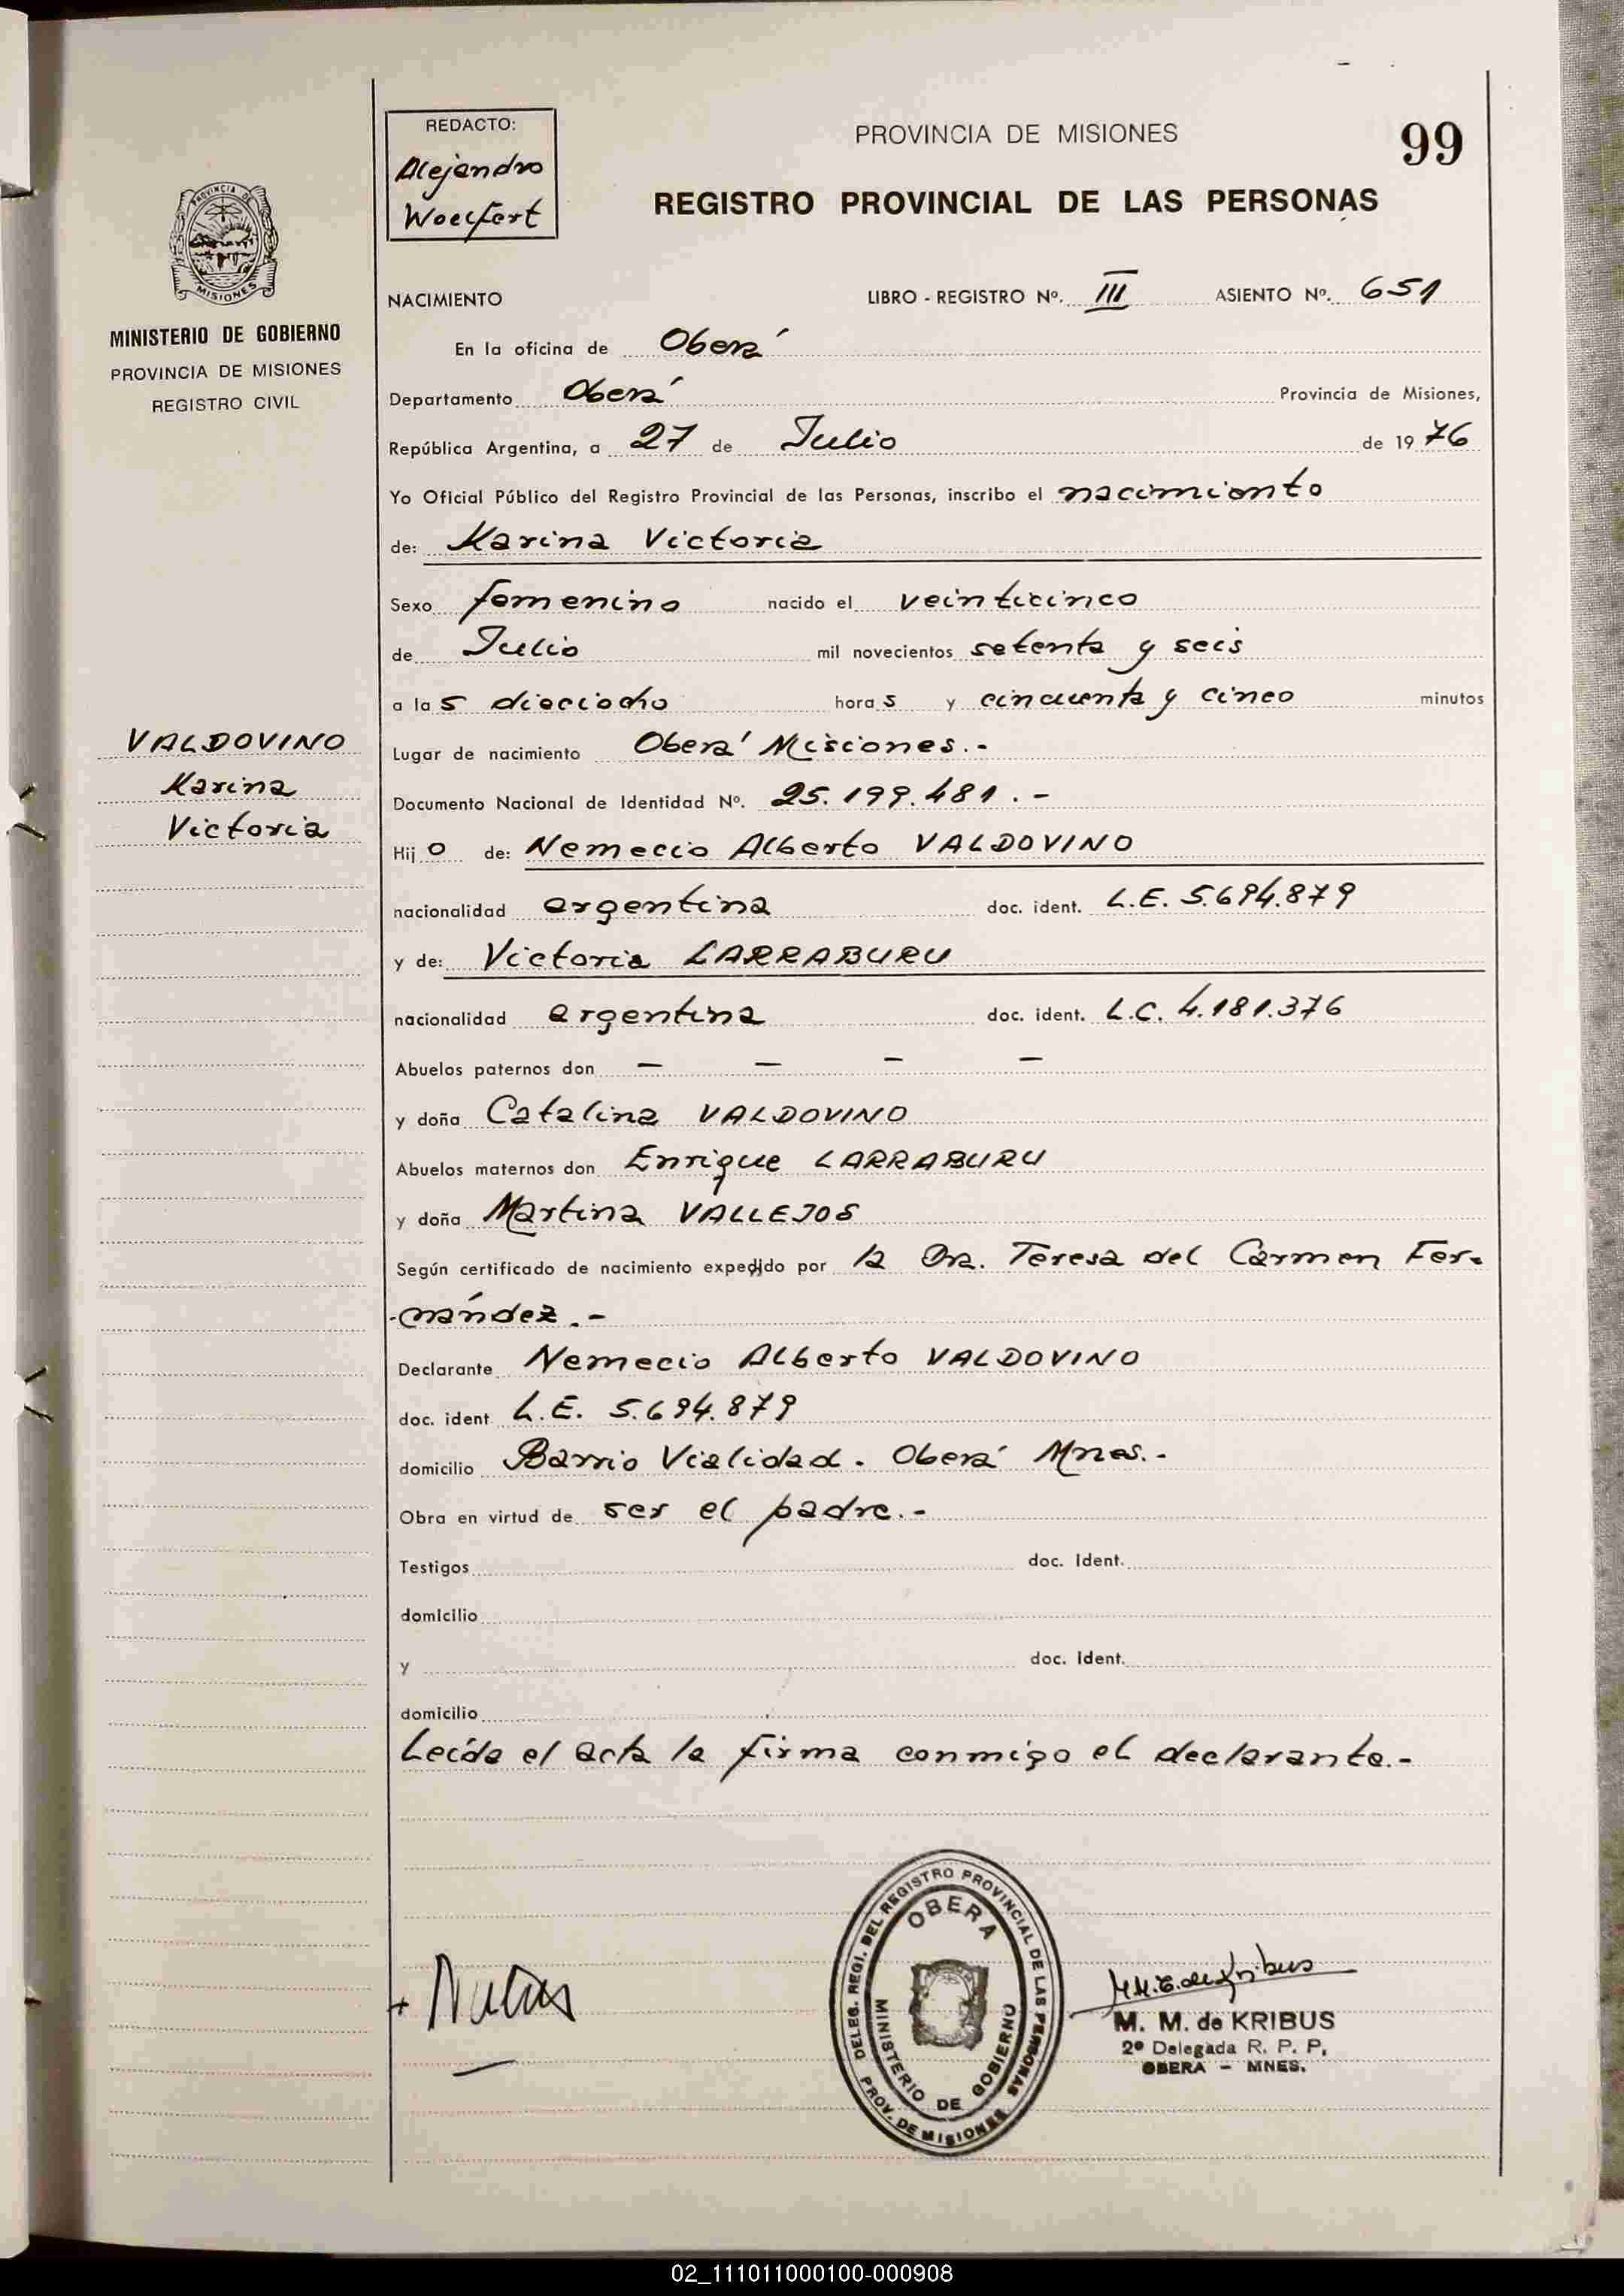 REDACTO:
Alejandro
PROVINCIA DE MISIONES
99
REGISTRO PROVINCIAL DE LAS PERSONAS
PROVINCIA DE
MISIONES
MINISTERIO DE GOBIERNO
PROVINCIA DE MISIONES
REGISTRO CIVIL
NACIMIENTO LIBRO - REGISTRO Nº. III ASIENTO Nº. 651
En la oficina de Oberá
Departamento Oberá Provincia de Misiones,
República Argentina, a 27 de Julio de 1976
Yo Oficial Público del Registro Provincial de las Personas, inscribo el nacimiento
de: Karina Victoria
Sexo femenino nacido el veinticinco
de Julio mil novecientos setenta y seis
a las dieciocho horas y cincuenta y cinco minutos
VALDOVINO
Karina
Victoria
Lugar de nacimiento Oberá Misiones.-
Documento Nacional de Identidad Nº. 25.199.481.-
Hijo de: Nemecio Alberto VALDOVINO
nacionalidad argentina doc. ident. L.E. 5.694.879
y de: Victoria LARRABURU
nacionalidad argentina doc. ident. L.C. 4.181.376
Abuelos paternos don — — — —
y doña Catalina VALDOVINO
Abuelos maternos don Enrique LARRABURU
y doña Martina VALLEJOS
Según certificado de nacimiento expedido por la Dra. Teresa del Carmen Fer-
-nández.-
Declarante Nemecio Alberto VALDOVINO
doc. ident. L.E. 5.694.879
domicilio Barrio Vialidad. Oberá Mnes.-
Obra en virtud de ser el padre.-
Testigos doc. Ident.
domicilio
y doc. Ident.
domicilio
Leída el acta la firma conmigo el declarante.-
DELEG. REGI. DEL REGISTRO PROVINCIAL DE LAS PERSONAS
OBERA
MINISTERIO DE GOBIERNO
PROV. DE MISIONES
M. M. de KRIBUS
2º Delegada R. P. P.
OBERA - MNES.
02_111011000100-000908